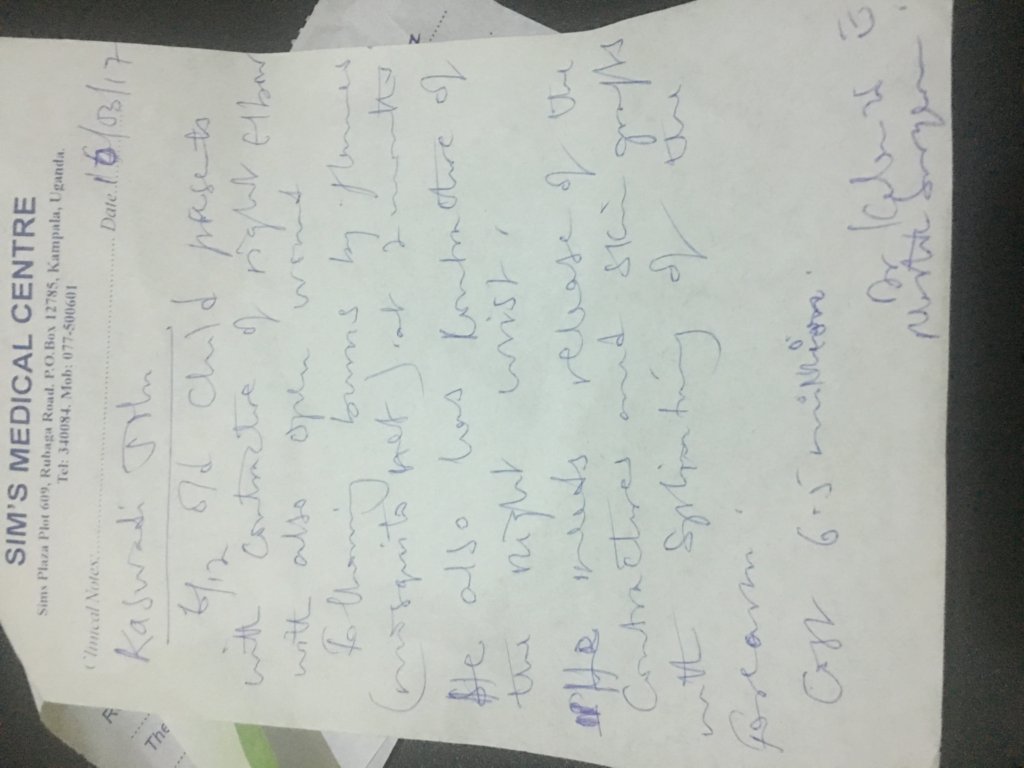 SIM'S MEDICAL CENTRE
Sims Plaza Plot 609, Rubaga Road, P.O.Box 12785, Kampala, Uganda.
Tel: 340084, Mob: 077-500601
Clinical Notes: Date 16/03/17
Kaswadi John
6/12 old child presents
with contracture of right elbow
with also open wound
following burns by flames
(mosquito net) at 2 months
He also has contracture of
the right wrist.
He needs release of the
contractures and skin grafts
with splinting of the
forearm.
Cost 6.5 million.
Dr
Surgeon
The